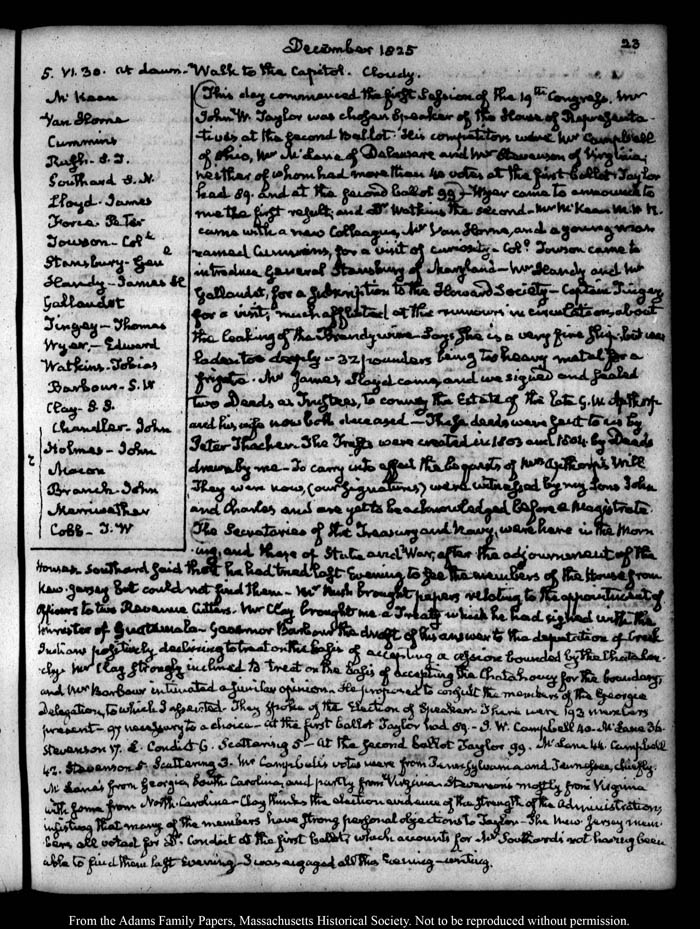 December 1825
23
5. VI. 30. at dawn. Walk to the Capitol. Cloudy.
Mc Kean
Van Horne
Cummins
Rush. R.
Southard S. N.
Lloyd. James
Force. Peter
Towson. Coll
Stansbury. Genl
Handy. James H
Gallaudet
Tingey. Thomas
Wyer. Edward
Watkins. Tobias
Barbour. J.
Clay.
Chandler. John
Holmes. John
Macon
Branch. John
Merriwether
Cobb. T. W
This day commenced the first Session of the 19th Congress. Mr
John W. Taylor was chosen Speaker of the House of Representa-
tives at the second Ballot. His competitors were Mr Campbell
of Ohio, Mr McLane of Delaware and Mr Stevenson of Virginia,
neither of whom had more than 40 votes at the first ballot. Taylor
had 89. and at the second ballot 99. Wyer came to announce to
me the first result, and Dr Watkins the second. Mr McKean M. H. R.
came with a new Colleague, Mr Van Horne, and a young man
named Cummins, for a visit of curiosity. Coll Towson came to
introduce General Stansbury of Maryland. Mr Handy and Mr
Gallaudet, for a subscription to the Howard Society. Captain Tingey
for a visit; much afflicted at the rumours in circulation about
the leaking of the Brandywine. Says she is a very fine Ship, but was
laden too deeply. 32 pounders being too heavy metal for a
frigate. Mr James Lloyd came, and we signed and sealed
two Deeds as Trustees, to convey the Estate of the late G. W. Apthorp
and his wife now both deceased. These deeds were sent to us by
Peter Thacher. The Trusts were created in 1803 and 1804 by Deeds
drawn by me. To carry into effect the bequests of Mrs Apthorp's Will
They were now, (our signatures) were witnessed by my Sons John
and Charles and are yet to be acknowledged before a Magistrate.
The Secretaries of the Treasury and Navy, were here in the Morn
ing, and those of State and War, after the adjournment of the
Houses. Southard said that he had tried last Evening to see the members of the House from
New-Jersey but could not find them. Mr Rush brought papers relating to the appointment of
Officers to two Revenue Cutters. Mr Clay brought me a Treaty which he had signed with the
Minister of Guatemala. Governor Barbour the draft of his answer to the deputation of Creek
Indians positively declining to treat on the basis of accepting a cession bounded by the Chatahoo-
chy. Mr Clay strongly inclined to treat on the basis of accepting the Chatahouchy for the boundary,
and Mr Barbour intimated a similar opinion. He proposed to consult the members of the Georgia
Delegation, to which I assented. They spoke of the Election of Speaker. There were 193 members
present. 97 necessary to a choice. At the first ballot Taylor had 89. J. W. Campbell 40. McLane 36.
Stevenson 17. L. Condict 6. Scattering 5. At the second ballot Taylor 99. McLane 44. Campbell
42. Stevenson 5. Scattering 3. Mr Campbell's votes were from Pennsylvania and Tennessee, chiefly.
McLane's from Georgia, South Carolina, and partly from Virginia. Stevenson's mostly from Virginia
with some from North-Carolina. Clay thinks the election evidence of the strength of the Administration,
insisting that many of the members have strong personal objections to Taylor. The New Jersey mem-
bers all voted for Dr Condict at the first ballot, which accounts for Mr Southard's not having been
able to find them last Evening. I was engaged all this Evening. writing.
From the Adams Family Papers, Massachusetts Historical Society. Not to be reproduced without permission.